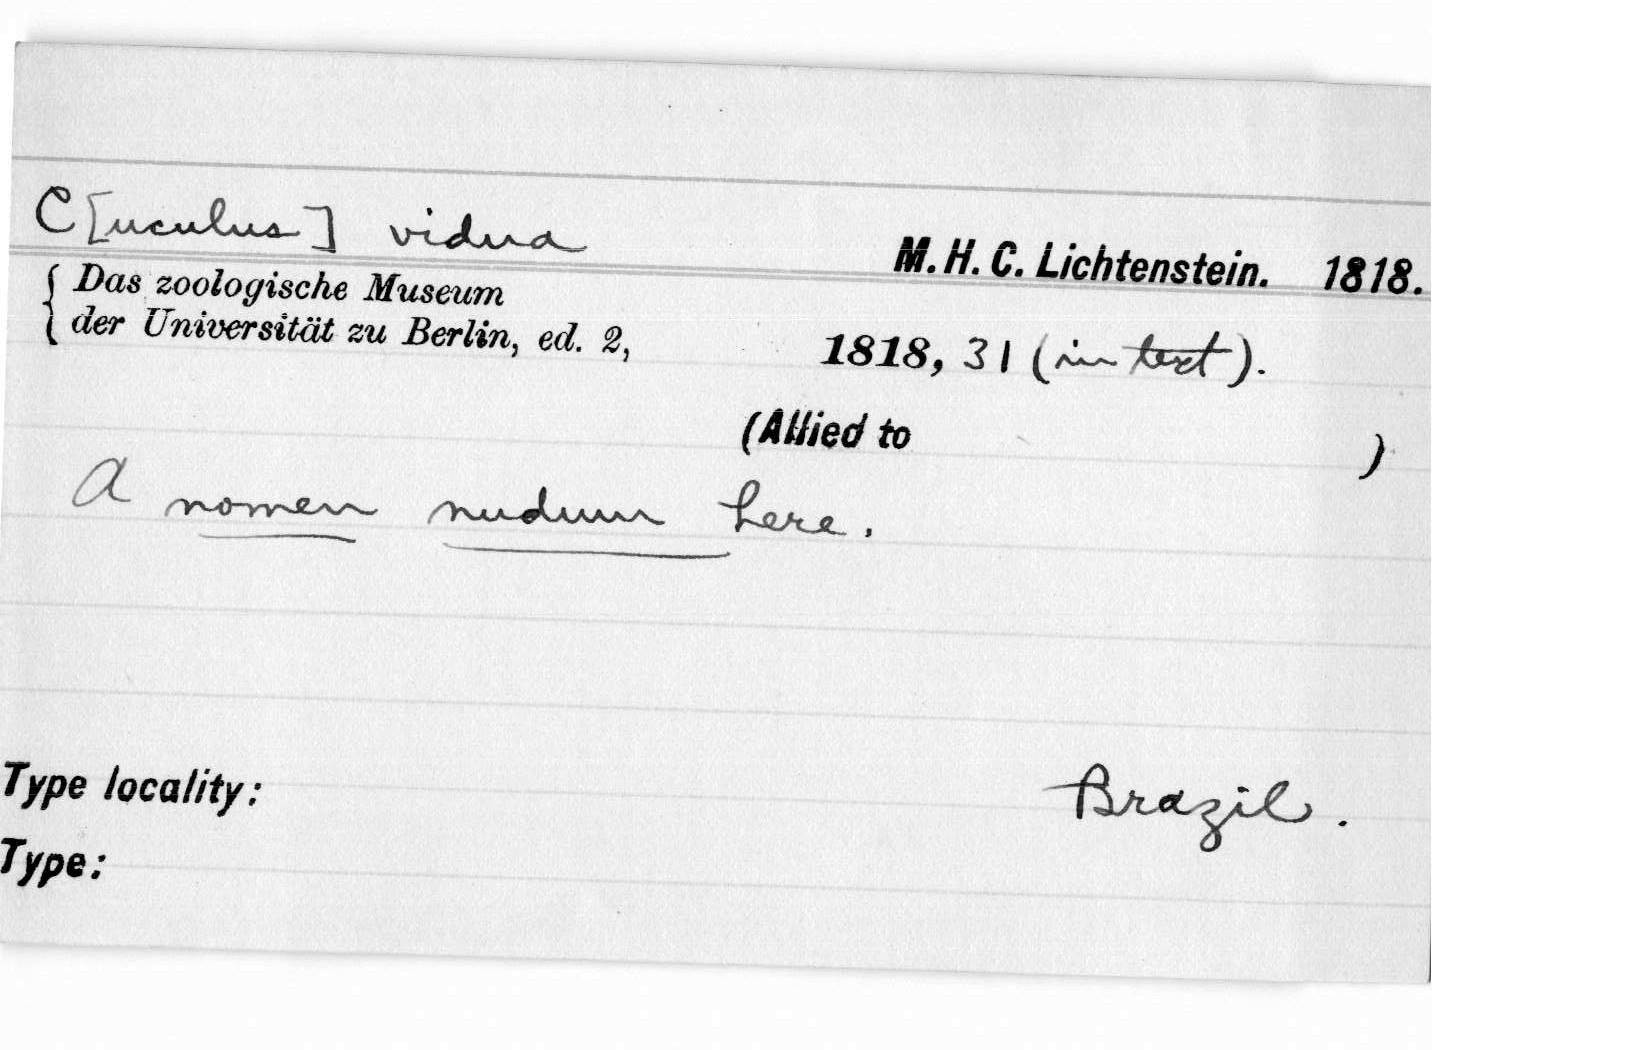 C[uculus] vidua M. H. C. Lichtenstein. 1818.
{ Das zoologische Museum
{ der Universität zu Berlin, ed. 2, 1818, 31 (in text).
(Allied to )
A nomen nudum here.
Type locality: Brazil.
Type: